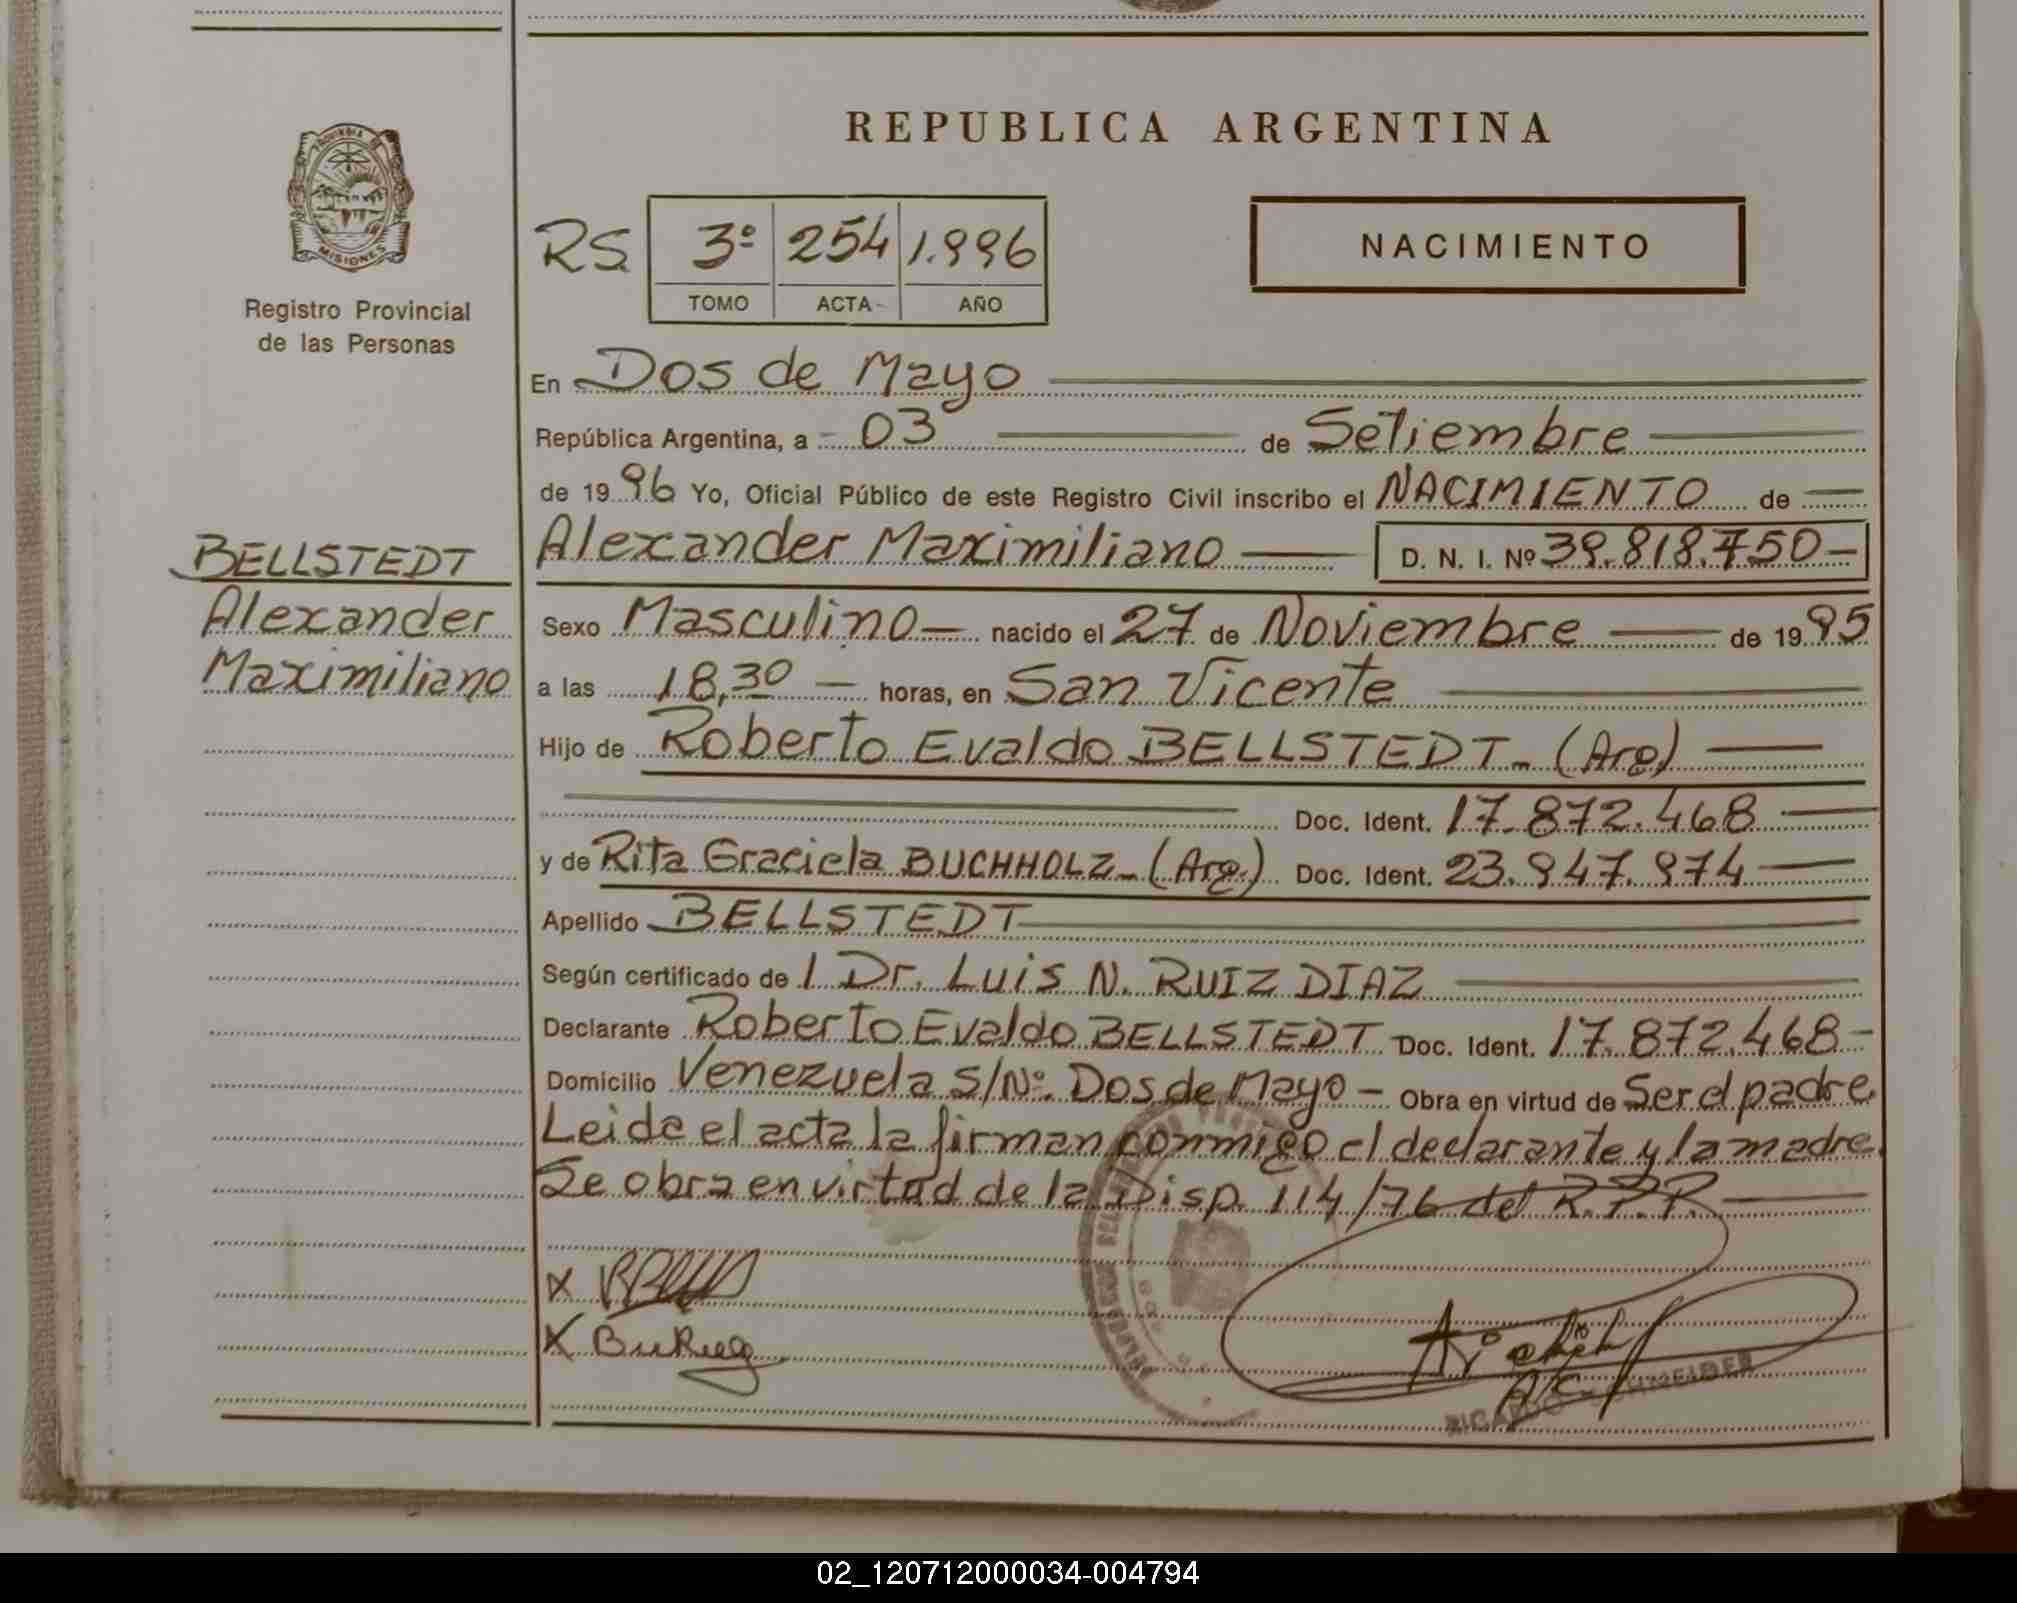 REPUBLICA ARGENTINA
PROVINCIA DE
MISIONES
Registro Provincial
de las Personas
RS 3º 254 1.996
TOMO ACTA AÑO
NACIMIENTO
En Dos de Mayo
República Argentina, a 03 de Setiembre
de 1996 Yo, Oficial Público de este Registro Civil inscribo el NACIMIENTO de
Alexander Maximiliano D. N. I. Nº 39.818.750
BELLSTEDT
Alexander
Maximiliano
Sexo Masculino nacido el 27 de Noviembre de 1995
a las 18,30 horas, en San Vicente
Hijo de Roberto Evaldo BELLSTEDT (Arg)
Doc. Ident. 17.872.468
y de Rita Graciela BUCHHOLZ (Arg.) Doc. Ident. 23.947.974
Apellido BELLSTEDT
Según certificado de l Dr. Luis N. RUIZ DIAZ
Declarante Roberto Evaldo BELLSTEDT Doc. Ident. 17.872.468
Domicilio Venezuela S/Nº. Dos de Mayo Obra en virtud de Ser el padre.
Leida el acta la firman conmigo el declarante y la madre.
Se obra en virtud de la Disp. 114/76 del R.P.P.
X
X
RICARDO SCHNEIDER
02_120712000034-004794